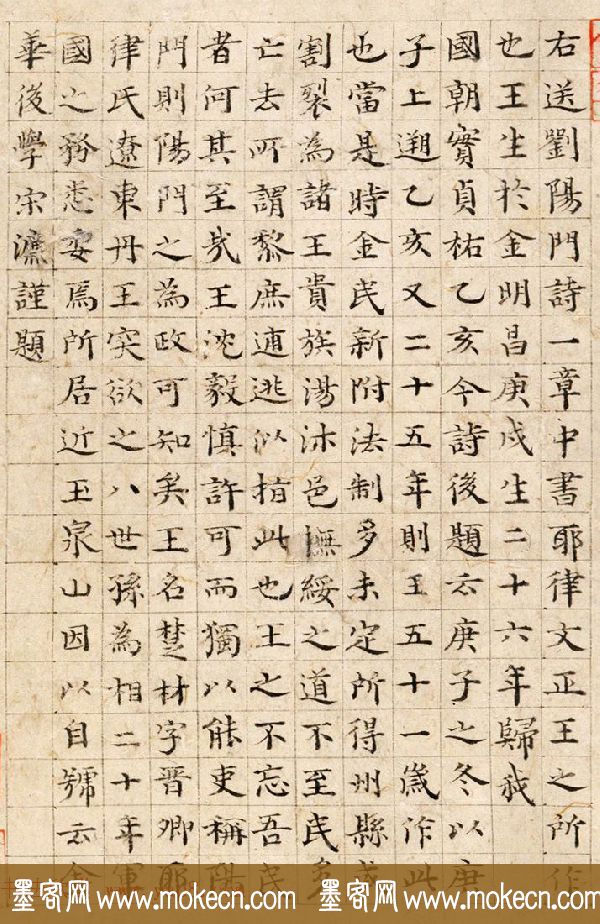 右送劉陽門詩一章中書耶律文正王之所作
也王生於金明昌庚戌生二十六年歸我
國朝實貞祐乙亥今詩後題云庚子之冬以庚
子上遡乙亥又二十五年則王五十一歲作此
也當是時金民新附法制多未定所得州縣或
割裂為諸王貴族湯沐邑撫綏之道不至民多
亡去所謂黎庶逋逃以指此也王之不忘吾民
者何其至哉王沈毅慎許可而獨以能吏稱陽
門則陽門之為政可知矣王名楚材字晉卿耶
律氏遼東丹王突欲之八世孫為相二十年軍
國之務悉妥焉所居近玉泉山因以自號云金
華後學宋濂謹題
墨客网 www.mokecn.com 墨客网 www.mokecn.com 墨客网 www.mokecn.com